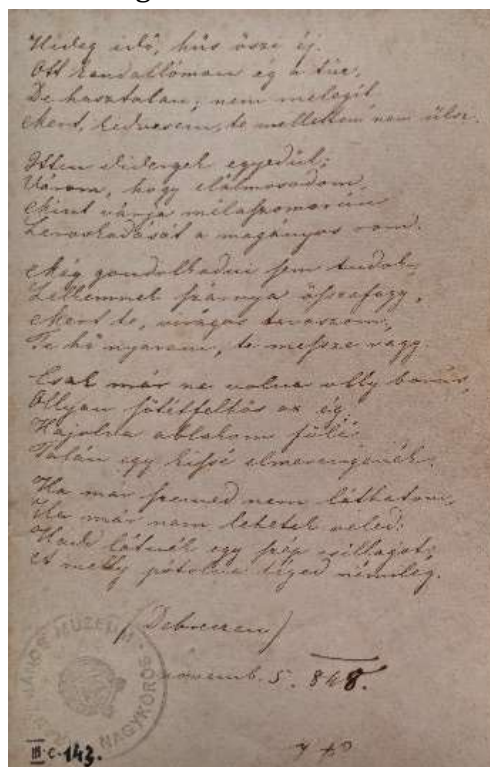 Hideg idő, hűs őszi éj.
Ott kandallóman ég a tűz,
De hasztalan, nem melegít
Mert, kedvesem, te mellettem nem ülsz.
Itten didergek egyedül;
Várom, hogy elálmosodom,
Mint várja mélaszomorún
Leroskadását a magányos rom.
Még gondolkodni sem tudok,
Lelkemnek szárnya összefagy,
Mert te, virágos tavaszom,
Te hő nyaram, te messze vagy.
Csak már ne volna olly borús,
Ollyan sötétfoltos az ég
Hajolva ablakom fölé
Talán egy kissé elmerengenék.
Ha már szemed nem láthatom,
Ha már nem lehetek veled:
Hadd látnék egy szép csillagot,
A melly pótolna téged némileg.
(Debreczen)
novemb. 5. 848.
MÚZEUM
NAGYKŐRÖS
III.C.143.